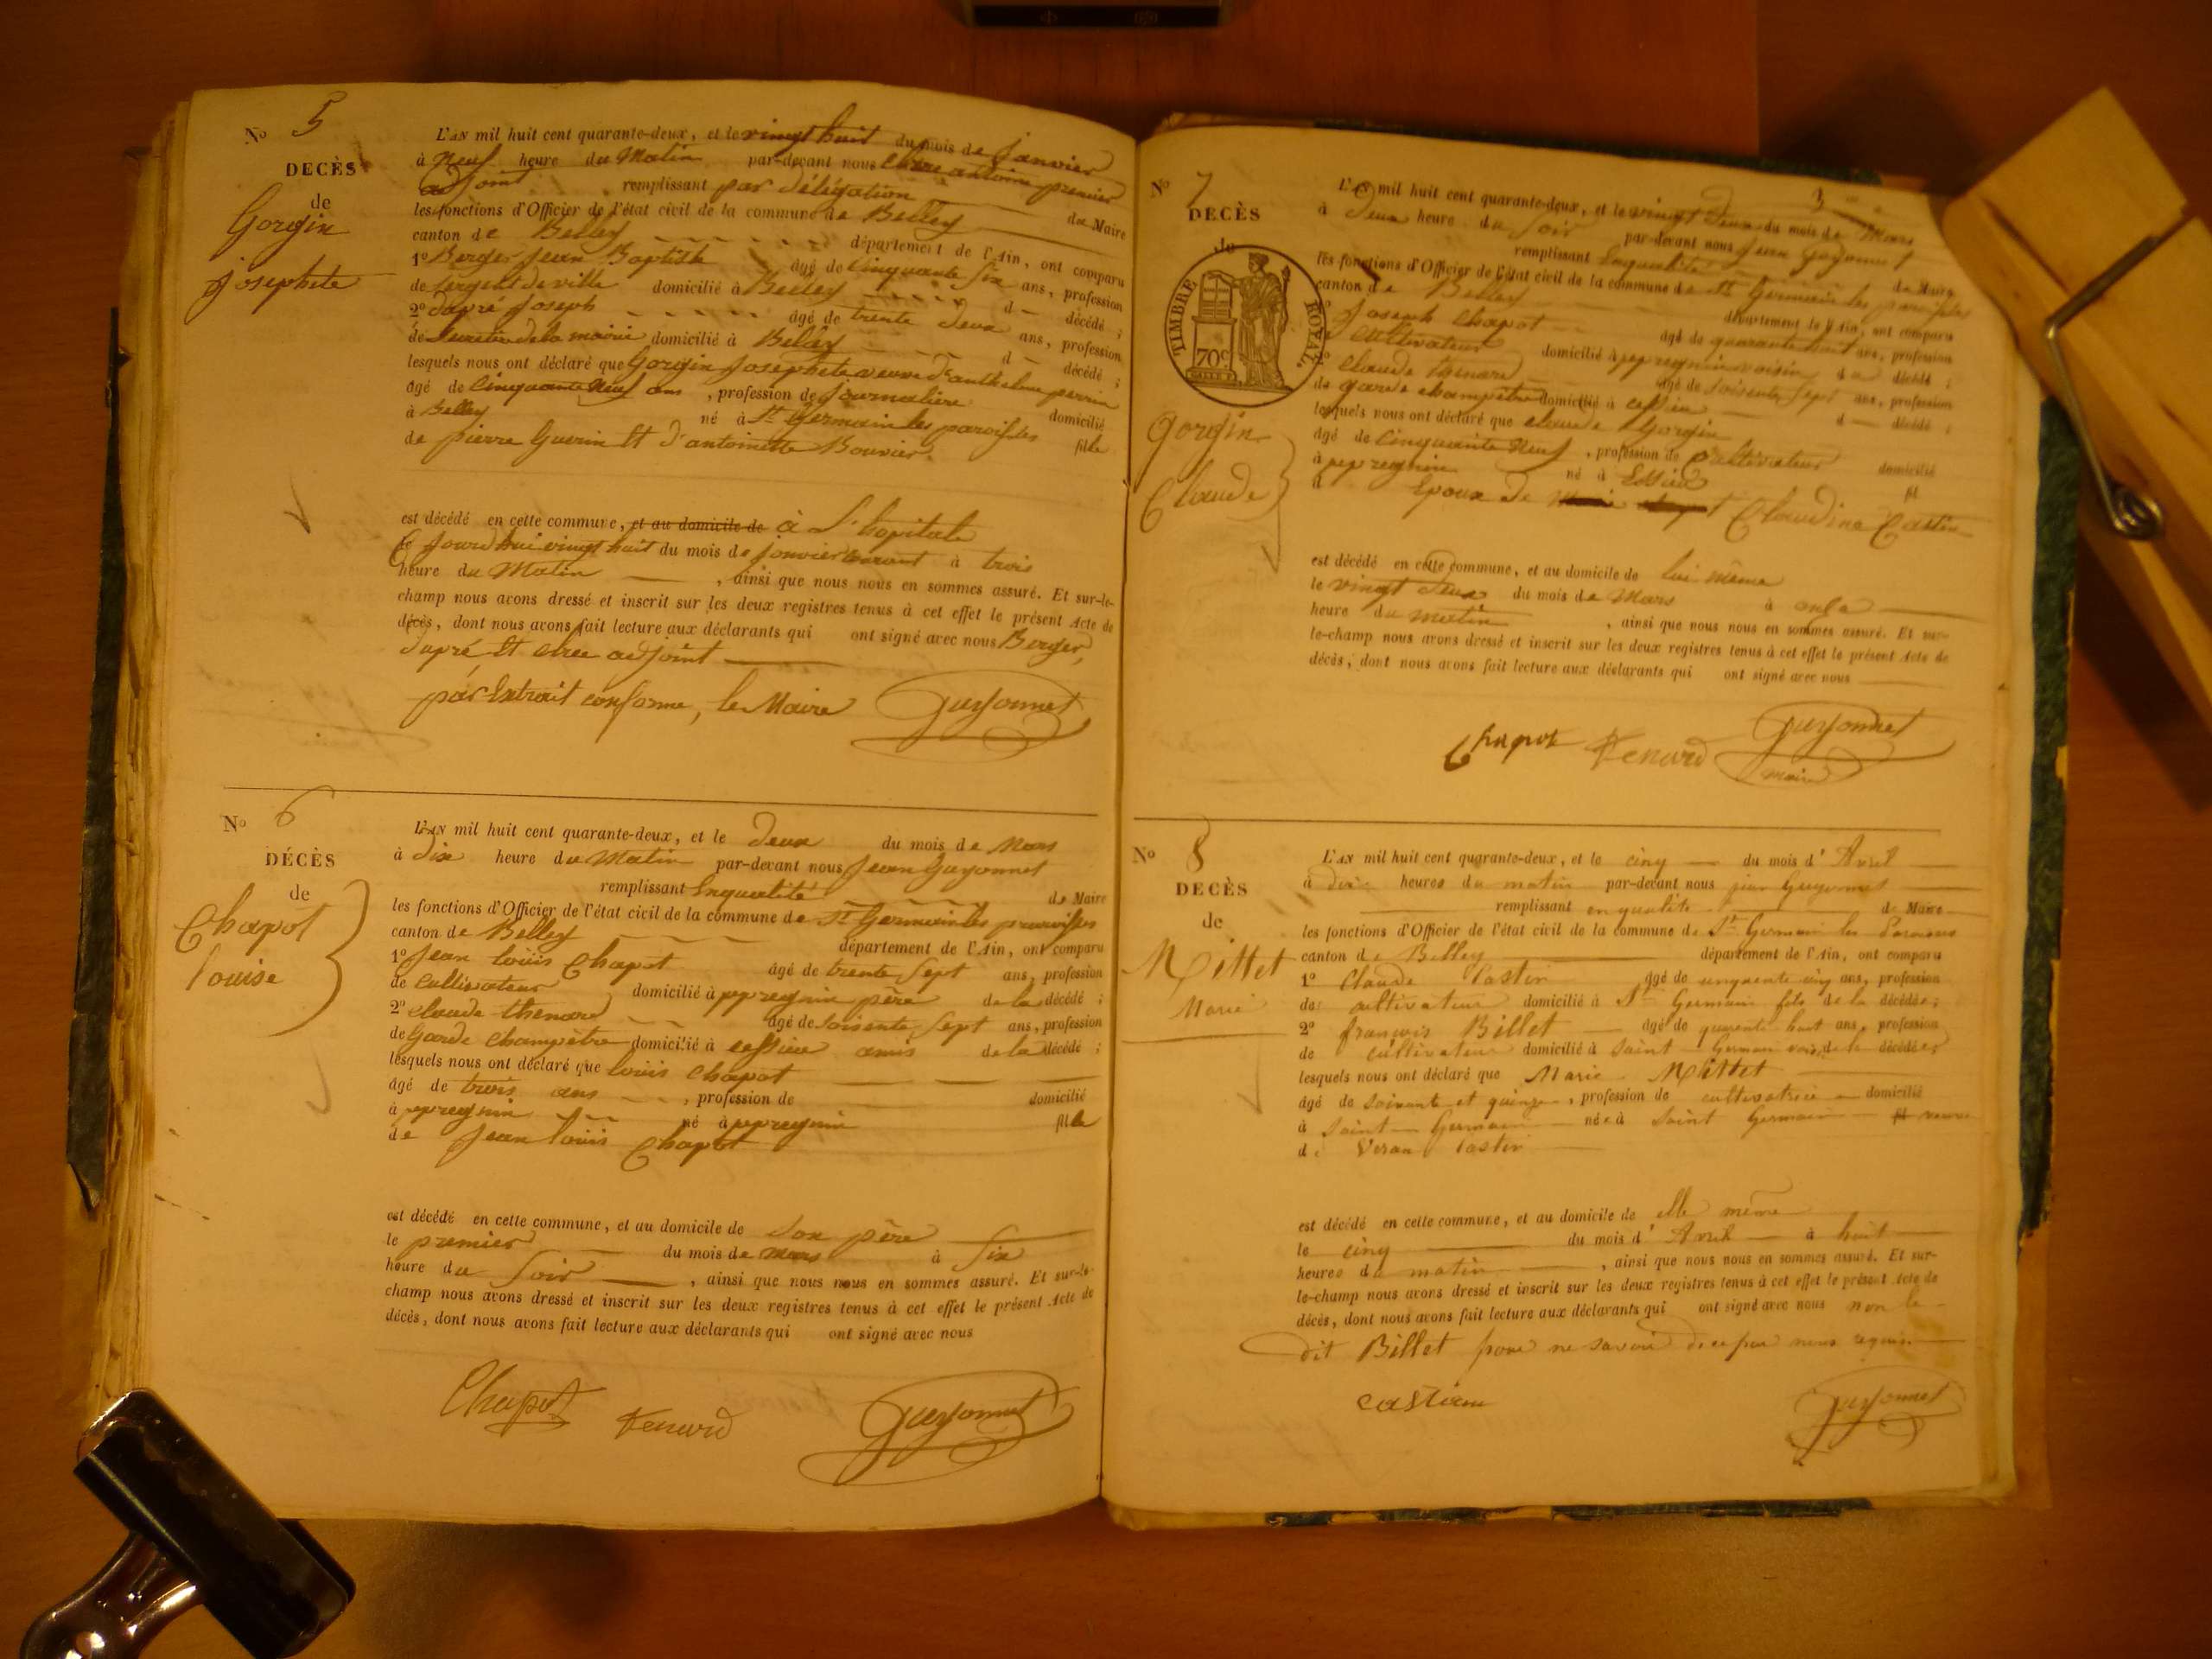 No 5
DECÈS
de
Gorgin
Josephete
L'AN mil huit cent quarante-deux, et le vingt huit du mois de Janvier
à Neuf heure du Matin par-devant nous antoine premier
adjoint remplissant par délégation du Maire
les fonctions d'Officier de l'état civil de la commune de Belley
canton de Belley département de l'Ain, ont comparu
1o Berger Jean Baptiste âgé de Cinquante Six ans, profession
de Sergent de ville domicilié à Belley d décédé ;
2o dupré Joseph âgé de trente deux ans, profession
de Secretaire de la mairie domicilié à Belley d décédé ;
lesquels nous ont déclaré que Gorgin Josephete veuve d'anthelme perrin
âgé de Cinquante Neuf ans , profession de Journaliere domicilié
à Belley né à St Germain les paroisses fille
de pierre Guerin Et d'antoinette Bouvier.
est décédé en cette commune, et au domicile de à L'hopitale
le Jourd'hui vingt huit du mois de janvier Courant à trois
heure du Matin , ainsi que nous nous en sommes assuré. Et sur-le-
champ nous avons dressé et inscrit sur les deux registres tenus à cet effet le présent Acte de
décès, dont nous avons fait lecture aux déclarants qui ont signé avec nous Berger,
dupré Et adjoint
par Extrait conforme, le Maire Guyonnet
No 6
DÉCÈS
de
Chapot
louise
L'AN mil huit cent quarante-deux, et le deux du mois de Mars
à dix heure du Matin par-devant nous Jean Guyonnet
remplissant Enqualité de Maire
les fonctions d'Officier de l'état civil de la commune de St Germain les paroisses
canton de Belley département de l'Ain, ont comparu
1o Jean louis Chapot âgé de trente Sept ans, profession
de Cultivateur domicilié à pepregnin père de la décédé ;
2o claude thenard âgé de Soisente Sept ans, profession
de Garde Champêtre domicilié à cessieu amis de la décédé ;
lesquels nous ont déclaré que louis Chapot
âgé de trois ans , profession de domicilié
à pepregnin né à pepregnin fille
de Jean louis Chapot
est décédé en cette commune, et au domicile de Son père
le premier du mois de mars à Six
heure du Soir , ainsi que nous nous en sommes assuré. Et sur-le-
champ nous avons dressé et inscrit sur les deux registres tenus à cet effet le présent Acte de
décès, dont nous avons fait lecture aux déclarants qui ont signé avec nous
Chapot Tenard Guyonnet
3
No 7
DECÈS
de
TIMBRE ROYAL.
70c
Gorgin
Claude
L'AN mil huit cent quarante-deux, et le vingt Deux du mois de Mars
à Deux heure du Soir par-devant nous Jean Guyonnet
remplissant Enqualité de Maire
les fonctions d'Officier de l'état civil de la commune de St Germain les paroisses
canton de Belley département de l'Ain, ont comparu
1o Joseph Chapot âgé de quarante huit ans, profession
Cultivateur domicilié à pepregnin voisin du décédé ;
2o Claude thenard âgé de Soisente Sept ans, profession
de garde champêtre domicilié à cessieu d décédé ;
lesquels nous ont déclaré que claude Gorgin
âgé de Cinquante Neuf , profession de Cultivateur domicilié
à pepregnin né à Essieu fil
d Epoux de Claudine Castin
est décédé en cette commune, et au domicile de lui même
le vingt deux du mois de Mars à onze
heure du matin , ainsi que nous nous en sommes assuré. Et sur-
le-champ nous avons dressé et inscrit sur les deux registres tenus à cet effet le présent Acte de
décès, dont nous avons fait lecture aux déclarants qui ont signé avec nous
Chapot Tenard Guyonnet
maire
No 8
DECÈS
de
Mittet
Marie
L'AN mil huit cent quarante-deux, et le cinq du mois d'Avril
à dix heures du matin par-devant nous jean Guyonnet
remplissant en qualité de Maire
les fonctions d'Officier de l'état civil de la commune de St Germain les Paroisses
canton de Belley département de l'Ain, ont comparu
1o Claude Castin âgé de cinquante cinq ans, profession
de cultivateur domicilié à St Germain fils de la décédée;
2o françois Billet âgé de quarente huit ans, profession
de cultivateur domicilié à saint Germain voisin de la décédée;
lesquels nous ont déclaré que Marie Mittet
âgé de soixante et quinze , profession de cultivatrice domicilié
à saint Germain née à saint Germain fil veuve
de Veran Castin
est décédé en cette commune, et au domicile de elle même
le cinq du mois d'Avril à huit
heures du matin , ainsi que nous nous en sommes assuré. Et sur-
le-champ nous avons dressé et inscrit sur les deux registres tenus à cet effet le présent Acte de
décès, dont nous avons fait lecture aux déclarants qui ont signé avec nous non le
dit Billet pour ne savoir de ce par nous requis
castin Guyonnet